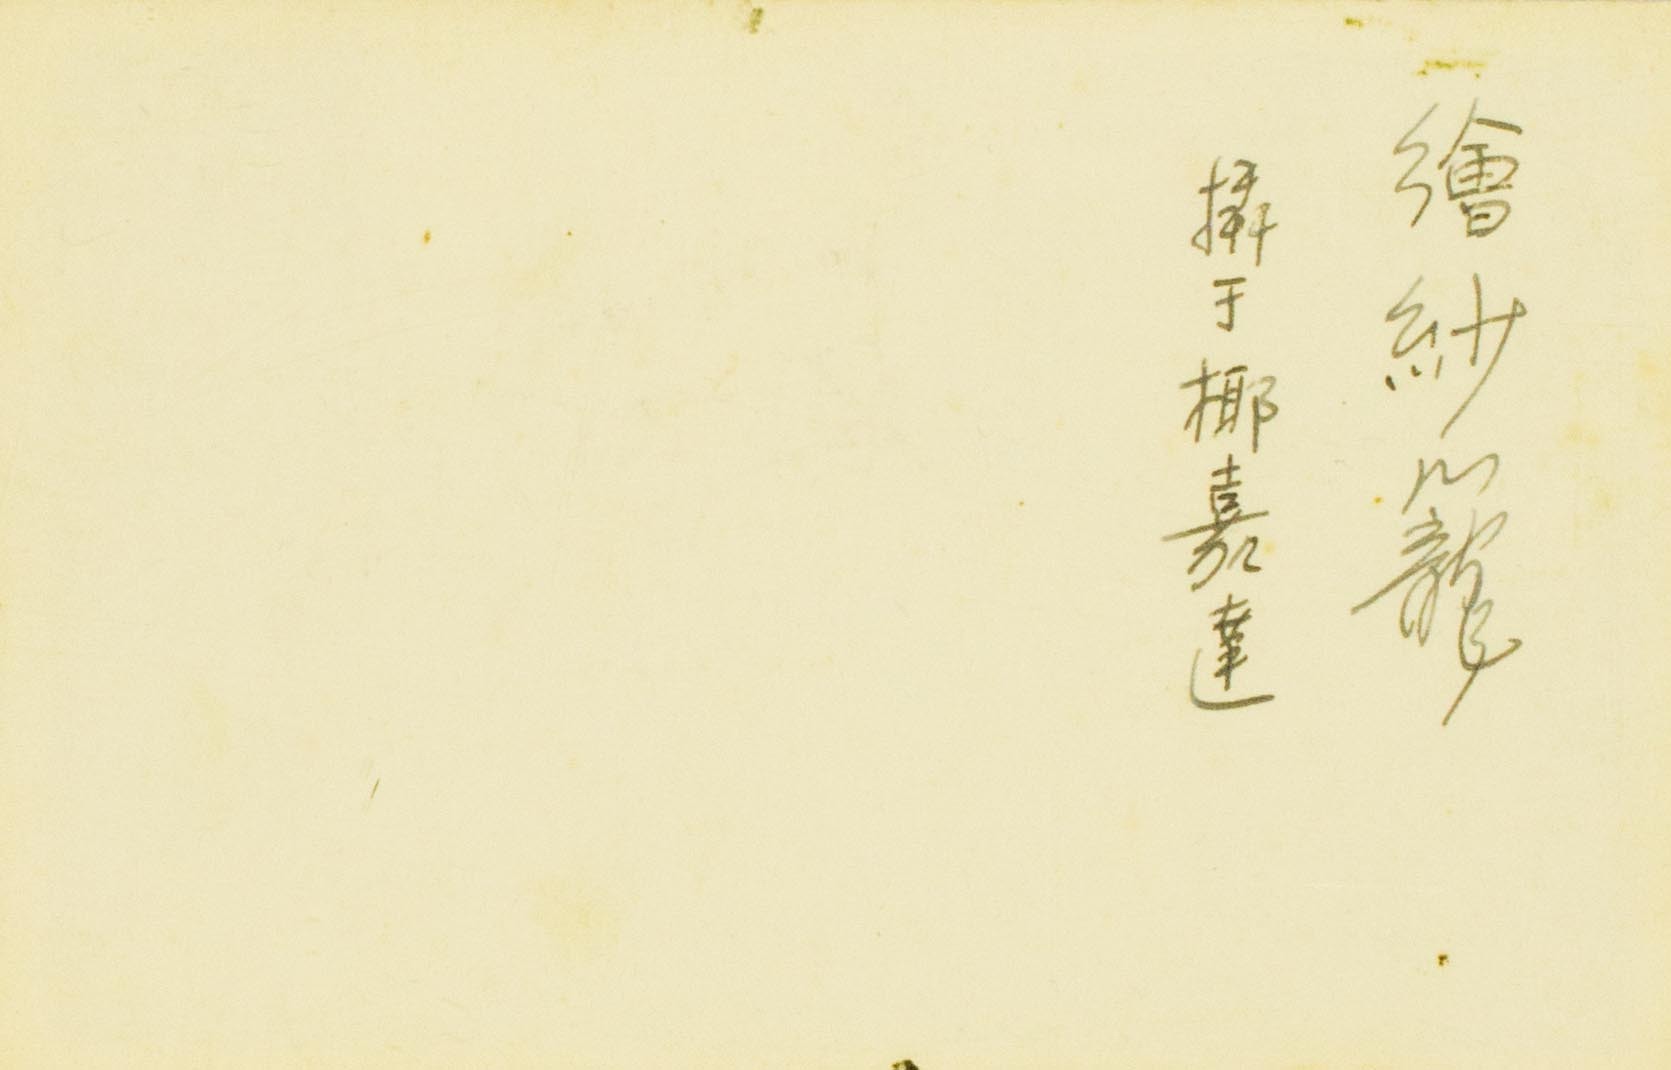 繪紗籠
攝于椰嘉達